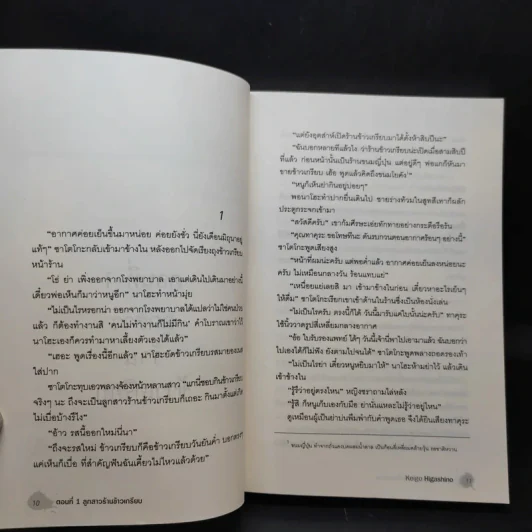 1
"อากาศค่อยเย็นขึ้นมาหน่อย ค่อยยังชั่ว นี่ยังเดือนมิถุนาอยู่
แท้ๆ" ซาโตโกะกลับเข้ามาข้างใน หลังออกไปจัดเรียงถุงข้าวเกรียบ
หน้าร้าน
"โธ่ ย่า เพิ่งออกจากโรงพยาบาล เอาแต่เดินไปเดินมาอย่างนี้
เดี๋ยวพ่อเห็นก็มาว่าหนูอีก" นาโฮะทำหน้ามุ่ย
"ไม่เป็นไรหรอกน่า ออกจากโรงพยาบาลได้แปลว่าไม่ใช่คนป่วย
แล้ว ก็ต้องทำงานสิ 'คนไม่ทำงานก็ไม่มีกิน' คำโบราณเขาว่าไว้
นาโฮะเองก็ควรทำมาหาเลี้ยงตัวเองได้แล้ว"
"เฮอะ พูดเรื่องนี้อีกแล้ว" นาโฮะยัดข้าวเกรียบรสมายองเนส
ใส่ปาก
ซาโตโกะทุบเอวพลางจ้องหน้าหลานสาว "แกนี่ชอบกินข้าวเกรียบ
จริงๆ นะ ถึงจะเป็นลูกสาวร้านข้าวเกรียบก็เถอะ กินมาตั้งแต่เกิด
ไม่เบื่อบ้างรึไง"
"อ้าว รสนี้ออกใหม่นี่นา"
"ถึงจะรสใหม่ ข้าวเกรียบก็คือข้าวเกรียบวันยันค่ำ
แค่เห็นก็เบื่อ ที่สำคัญฟันฉันเคี้ยวไม่ไหวแล้วด้วย"
10 ตอนที่ 1 ลูกสาวร้านข้าวเกรียบ
"แต่ยังอุตส่าห์เปิดร้านข้าวเกรียบมาได้ตั้งห้าสิบปีนะ"
"ฉันบอกหลายทีแล้วไง ว่าร้านข้าวเกรียบน่ะเปิดเมื่อสามสิบปี
ที่แล้ว ก่อนหน้านั้นเป็นร้านขนมญี่ปุ่น แต่อยู่ดีๆ พ่อแกก็หันมา
ขายข้าวเกรียบ เฮ้อ พูดแล้วคิดถึงขนม
"หนูก็เห็นย่ากินอยู่บ่อยๆ"
พอนาโฮะทำท่าเบ้ปากยื่นไป ชายร่างท้วมในสูทสีเทาก็ผลัก
ประตูกระจกเข้ามา
"สวัสดีครับ" เขาก้มศีรษะเอ่ยทักทายอย่างกระตือรือร้น
"คุณทาคุระ ขอโทษทีนะ ต้นรบกวนตอนอากาศร้อนๆ อย่างนี้"
ซาโตโกะพูดเสียงสูง
"หน้าที่ผมน่ะครับ แต่พอค่ำแล้ว อากาศค่อยเย็นลงหน่อยนะ
ครับ ไม่เหมือนกลางวัน ร้อนแทบแย่"
"เหนื่อยแย่เลยสิ มา เข้ามาข้างในก่อน เดี๋ยวหาอะไรเย็นๆ
ให้ดื่ม" ซาโตโกะเรียกเขาเข้าด้านในร้านซึ่งเป็นห้องนั่งเล่น
"ไม่เป็นไรครับ ตรงนี้ก็ได้ วันนี้มารับแค่ใบนั้นน่ะครับ" ทาคุระ
ใช้นิ้ววาดรูปสี่เหลี่ยมกลางอากาศ
"อ้อ ใบรับรองแพทย์ ได้ๆ วันนี้เจ้านี่พาไปเอามาแล้ว ฉันบอกว่า
ไปเองได้ก็ไม่ฟัง ยังตามไปจนได้" ซาโตโกะพูดพลางถอดรองเท้า
"ไม่เป็นไรย่า เดี๋ยวหนูหยิบมาให้" นาโฮะห้ามย่าไว้ แล้วเดิน
เข้าข้างใน
"รู้รึว่าอยู่ตรงไหน" หญิงชราถามไล่หลัง
"รู้สิ ก็หนูเก็บเองกับมือ ย่านั่นแหละไม่รู้ว่าอยู่ไหน"
Keigo Higashino 11